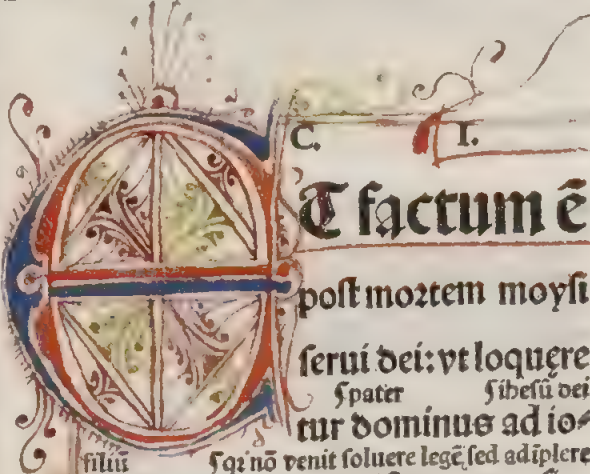 C. I.
ET factum ē
post mortem moysi
serui dei: vt loquere
ʃpater ʃihesū dei
tur dominus ad io⸗
filiū ʃqꝛ nō venit soluere legē sed adīplere